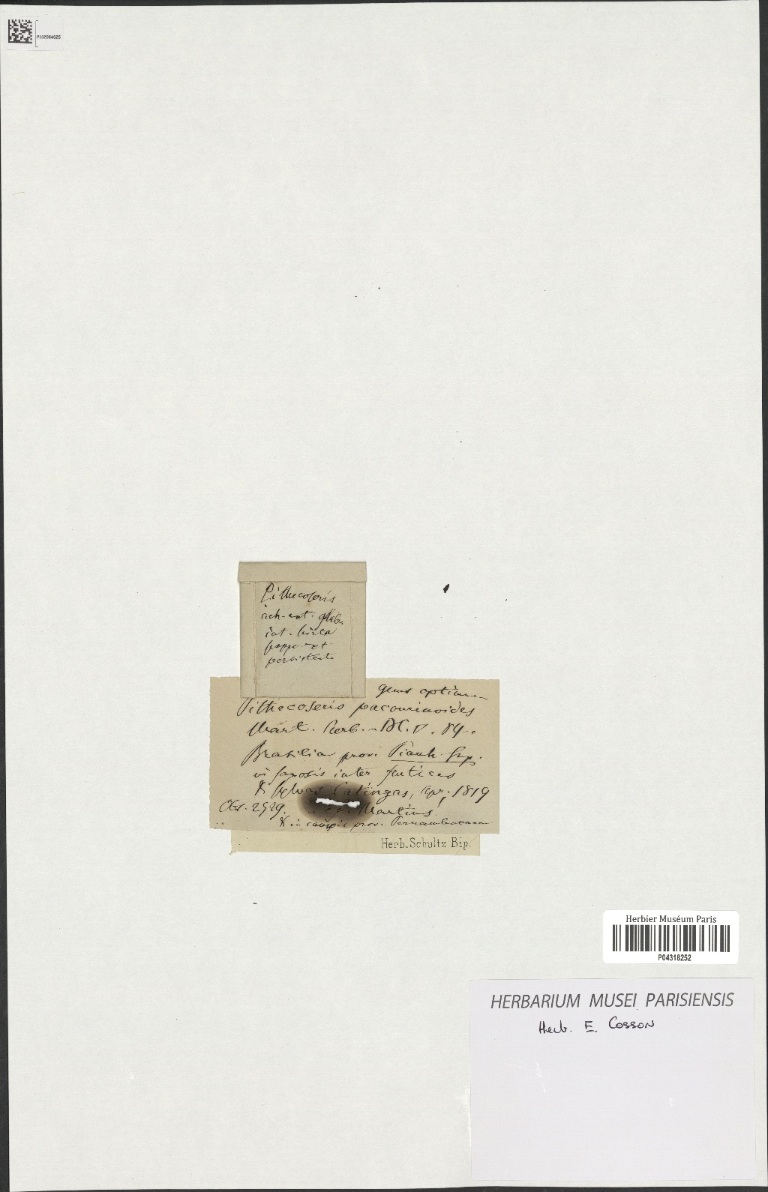 Pithecoseris
ach. ext. glabr
int.
papp. ext
persistente
genus optimum
Pithecoseris pacourinoides
Mart. herb. - DC. V. 84.
Brasilia prov. Piauh.
in inter frutices
Catingas, apr. 1819
Obs. 2429. Martius
prov. Pernambucanae
Herb. Schultz Bip.
Herbier Muséum Paris
P04318252
HERBARIUM MUSEI PARISIENSIS
Herb. E. Cosson